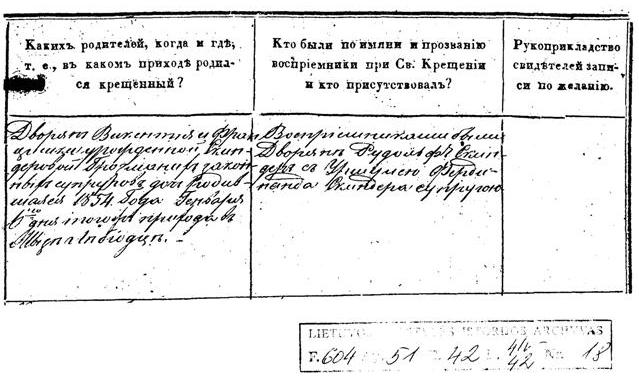 Какихъ родителей, когда и гдѣ,
т. е., въ какомъ приходѣ родил-
ся крещённый?
Кто были по имяни и прозванію
воспріемники при Св. Крещеніи
и кто присутствовалъ?
Рукоприкладство
свидѣтелей запи-
си по желанію.
Дворянъ Викентія и Фран
цишки урожденной Скин-
деровой закон-
ныхъ супруговъ дочь родив-
шаяся 1854 Года Генваря
6 дня того прихода въ
Воспріемниками были
Дворянъ Рудольфъ Скин-
деръ с Уршулею Ферди-
нанда Скиндера супругою
LIETUVOS ISTORIJOS ARCHYVAS
F. 604 51 42 42 Nr. 18